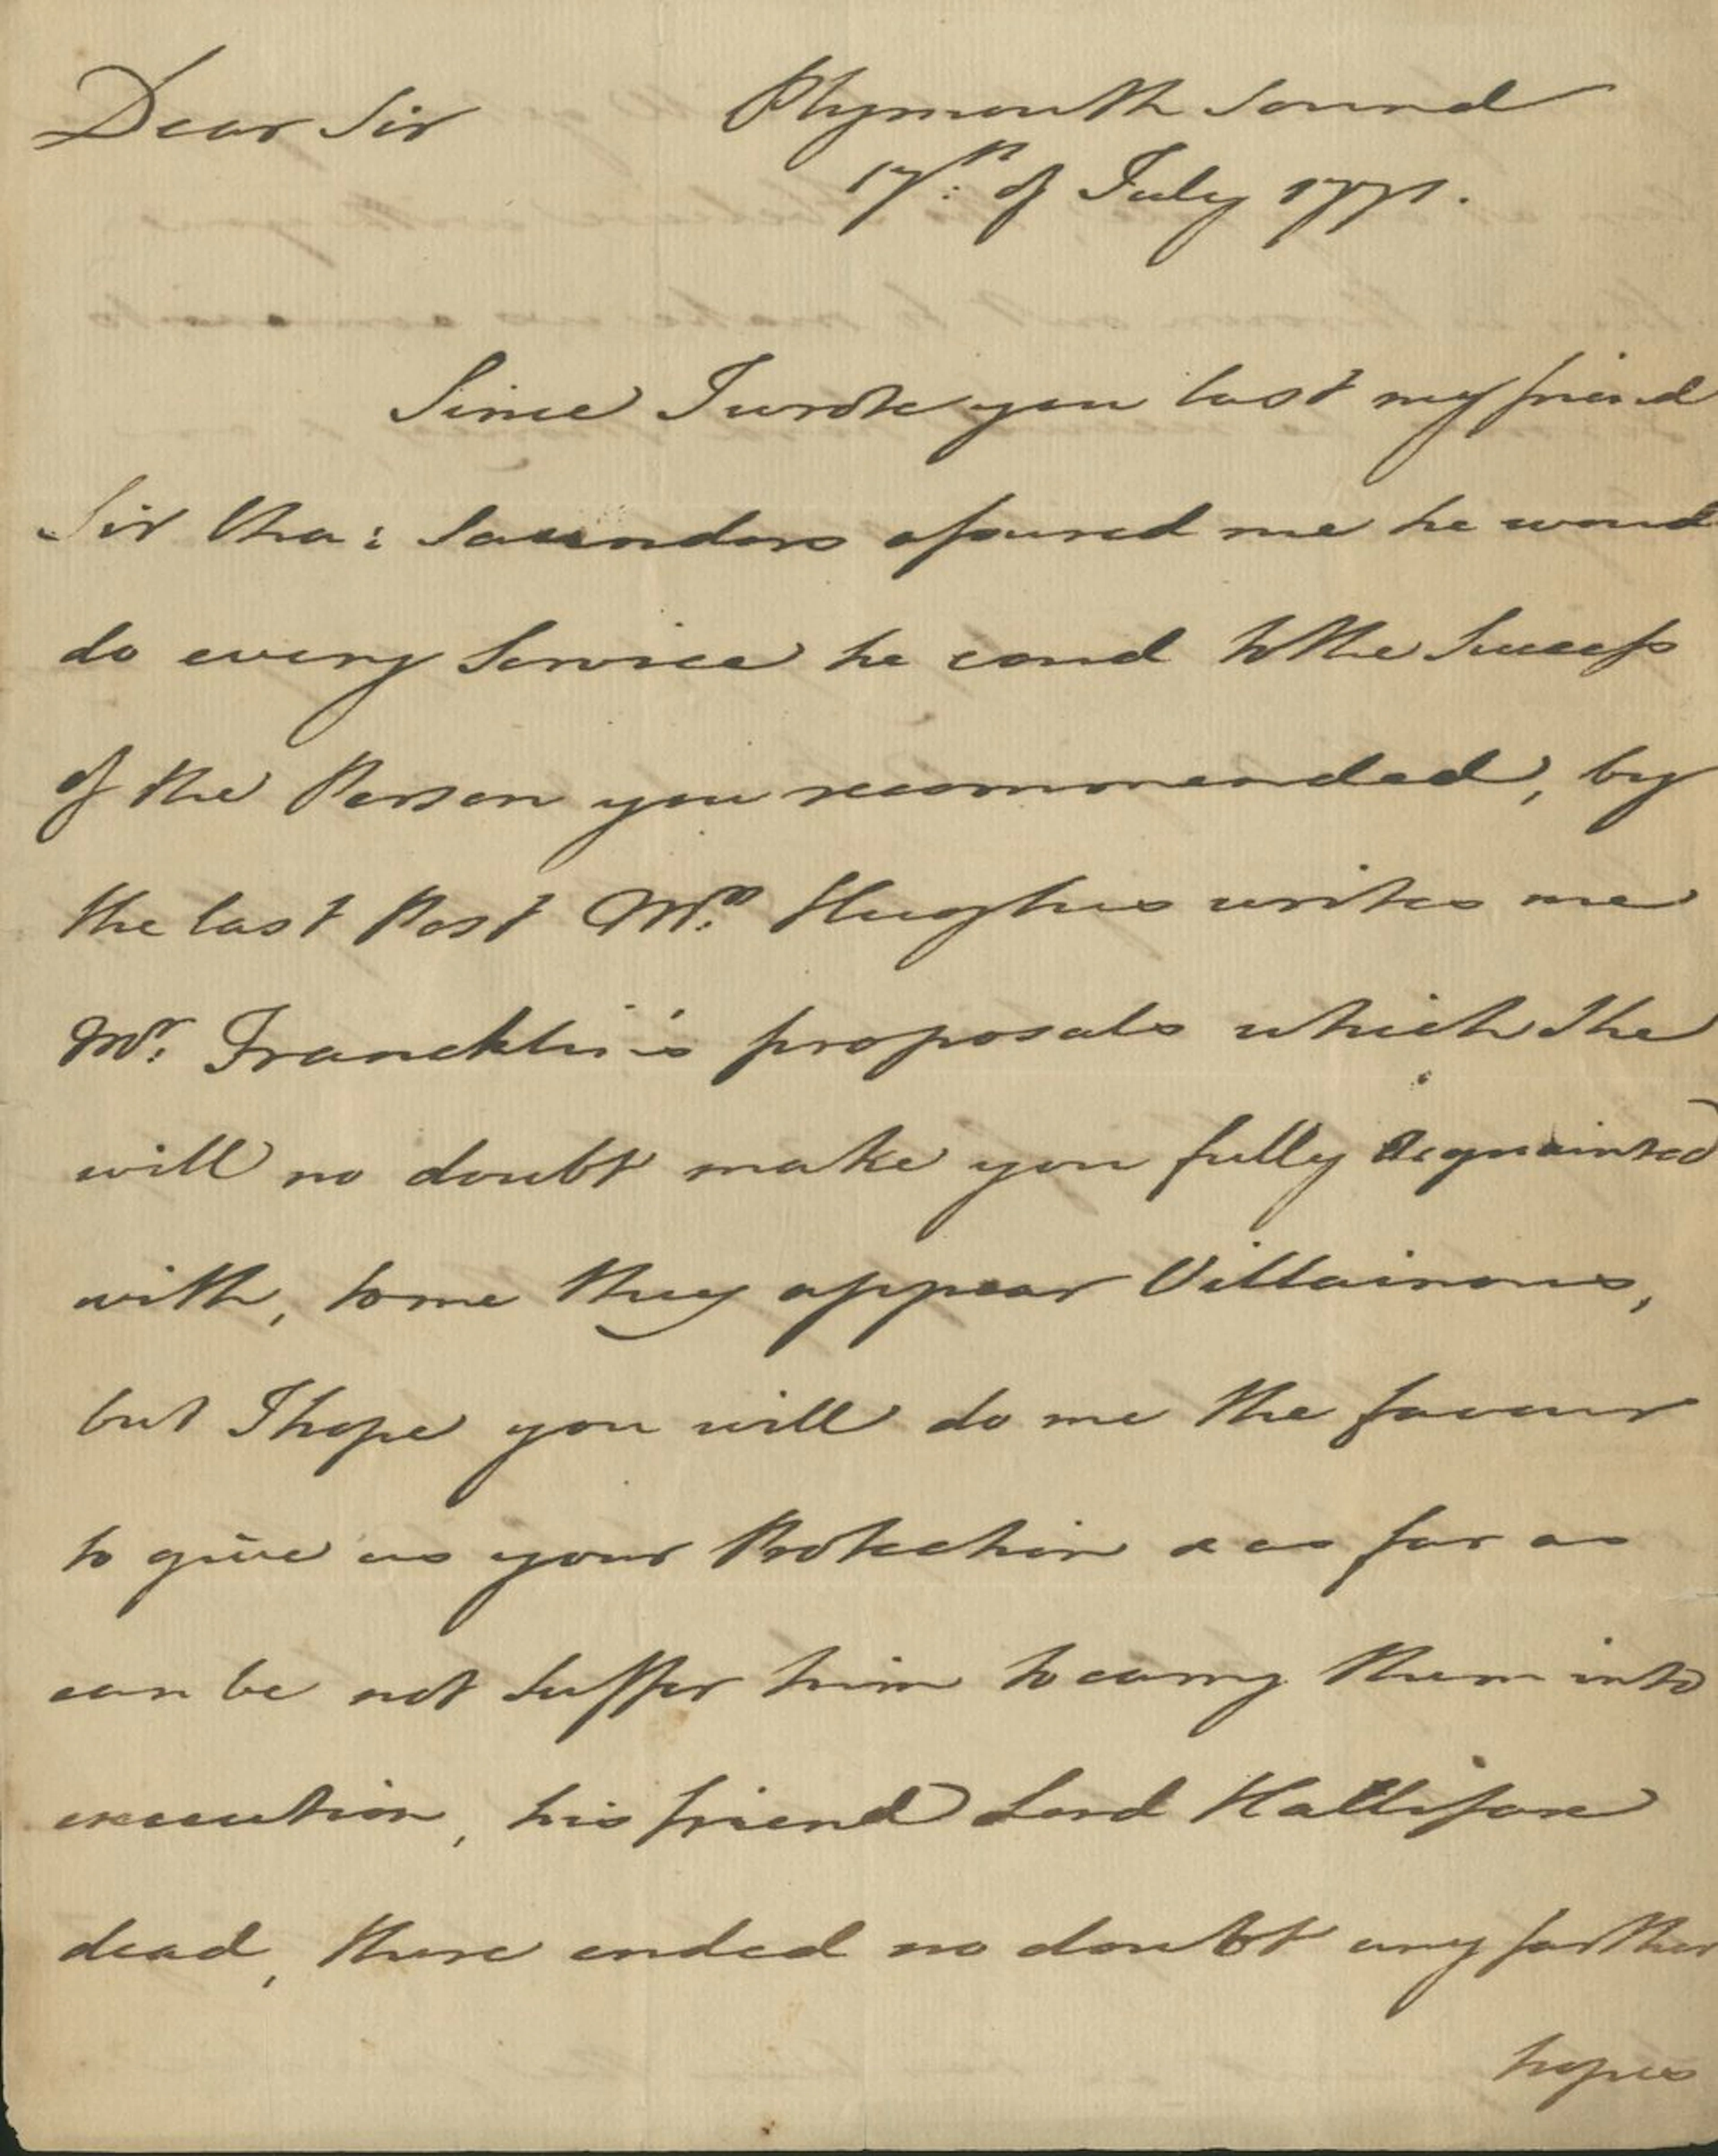 Dear Sir Plymouth Sound
17th: of July 1771.
Since I wrote you last my friend
Sir Cha: Saunders assured me he woud
do every Service he coud to the Success
of the Person you recommended, by
the last Post Mrs: Hughes writes me
Mr: Francklin's proposals which She
will no doubt make you fully Acquainted
with, to me they appear Villainous,
but I hope you will do me the favour
to give us your Protection & as far as
can be not Suffer him to carry them into
execution, his friend Lord Hallifax
dead, there ended no doubt any farther
hopes